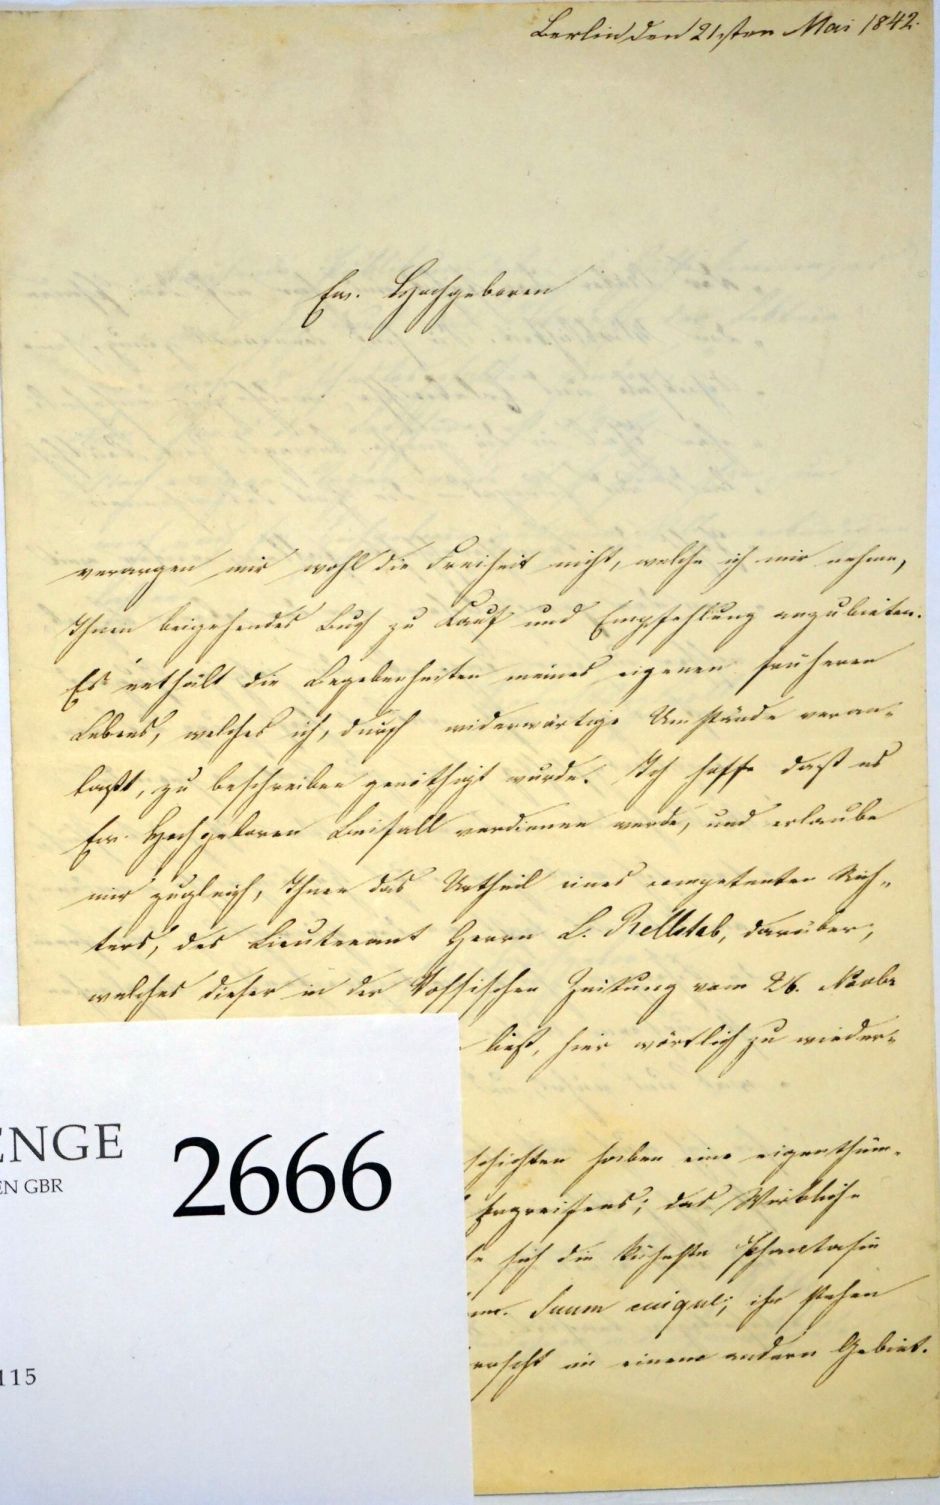 Berlin den 21sten Mai 1842.
Ew. Hochgeboren
verargen mir wohl die Freiheit nicht, welche ich mir nehme,
Ihnen beigehendes Buch zu Kauf und Empfehlung anzubieten.
Es enthält die Begebenheiten meines eigenen früheren
Lebens, welches ich, durch widerwärtige Umstände veran-
laßt, zu beschreiben genöthigt wurde. Ich hoffe daß es
Ew. Hochgeboren Beifall verdienen werde, und erlaube
mir zugleich, Ihnen das Urtheil eines competenten Rich-
ters, des Lieutenant Herrn L. Rellstab, darüber,
welches dieser in der Vossischen Zeitung vom 26. Novbr
ließ, hier wörtlich zu wieder-
schichten haben eine eigenthüm-
Ergreifens; das Wirkliche
sich die kühnste Phantasie
Suum cuique; ihr stehen
errscht in einem andern Gebiet.
ENGE
EN GBR
2666
115